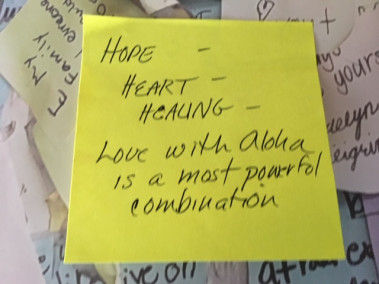 HOPE -
HEART -
HEALING -
Love with Aloha
is a most powerful
combination
My
Family
yours